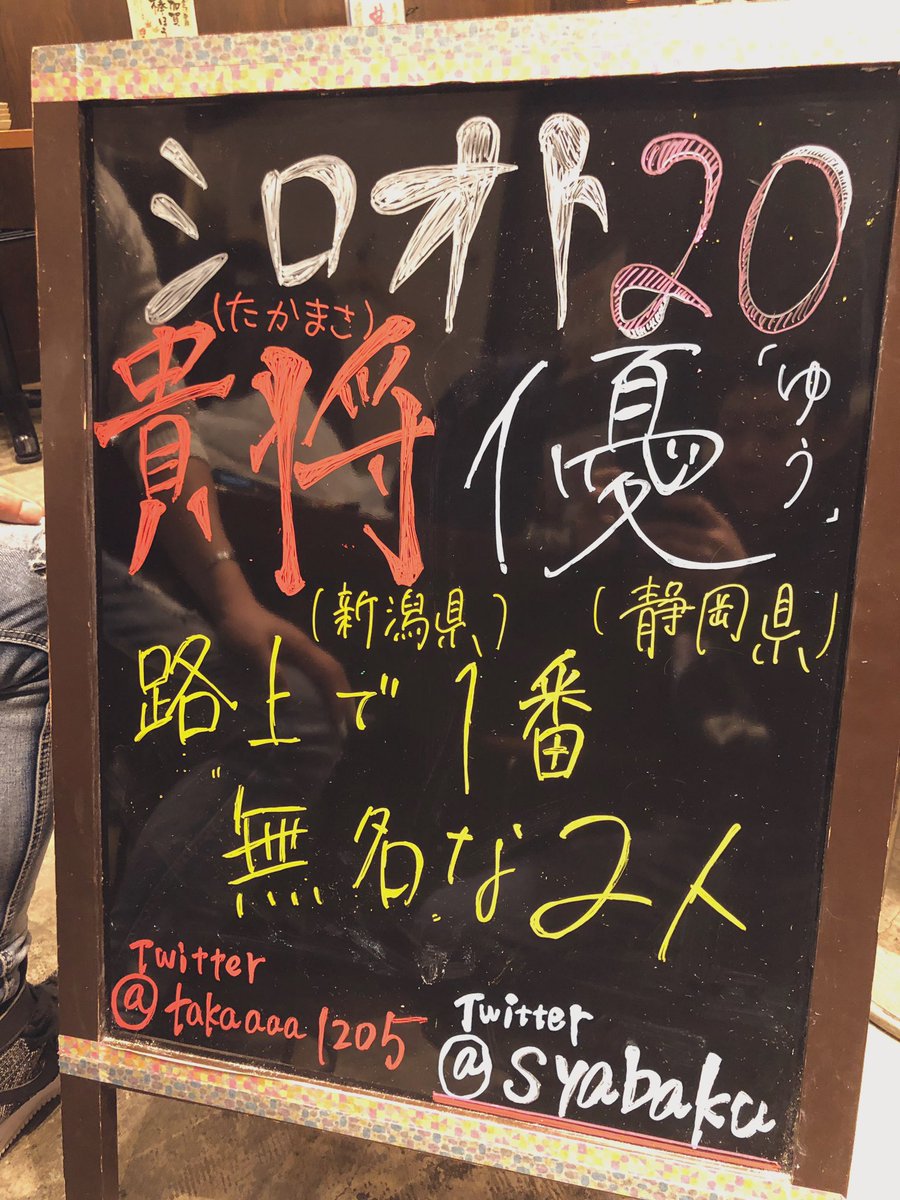 シロオト20
(たかまさ)
貴将 優 「ゆう」
(新潟県) (静岡県)
路上で1番
"無名"な2人
Twitter
@takaaaa1205
Twitter
@syabaku